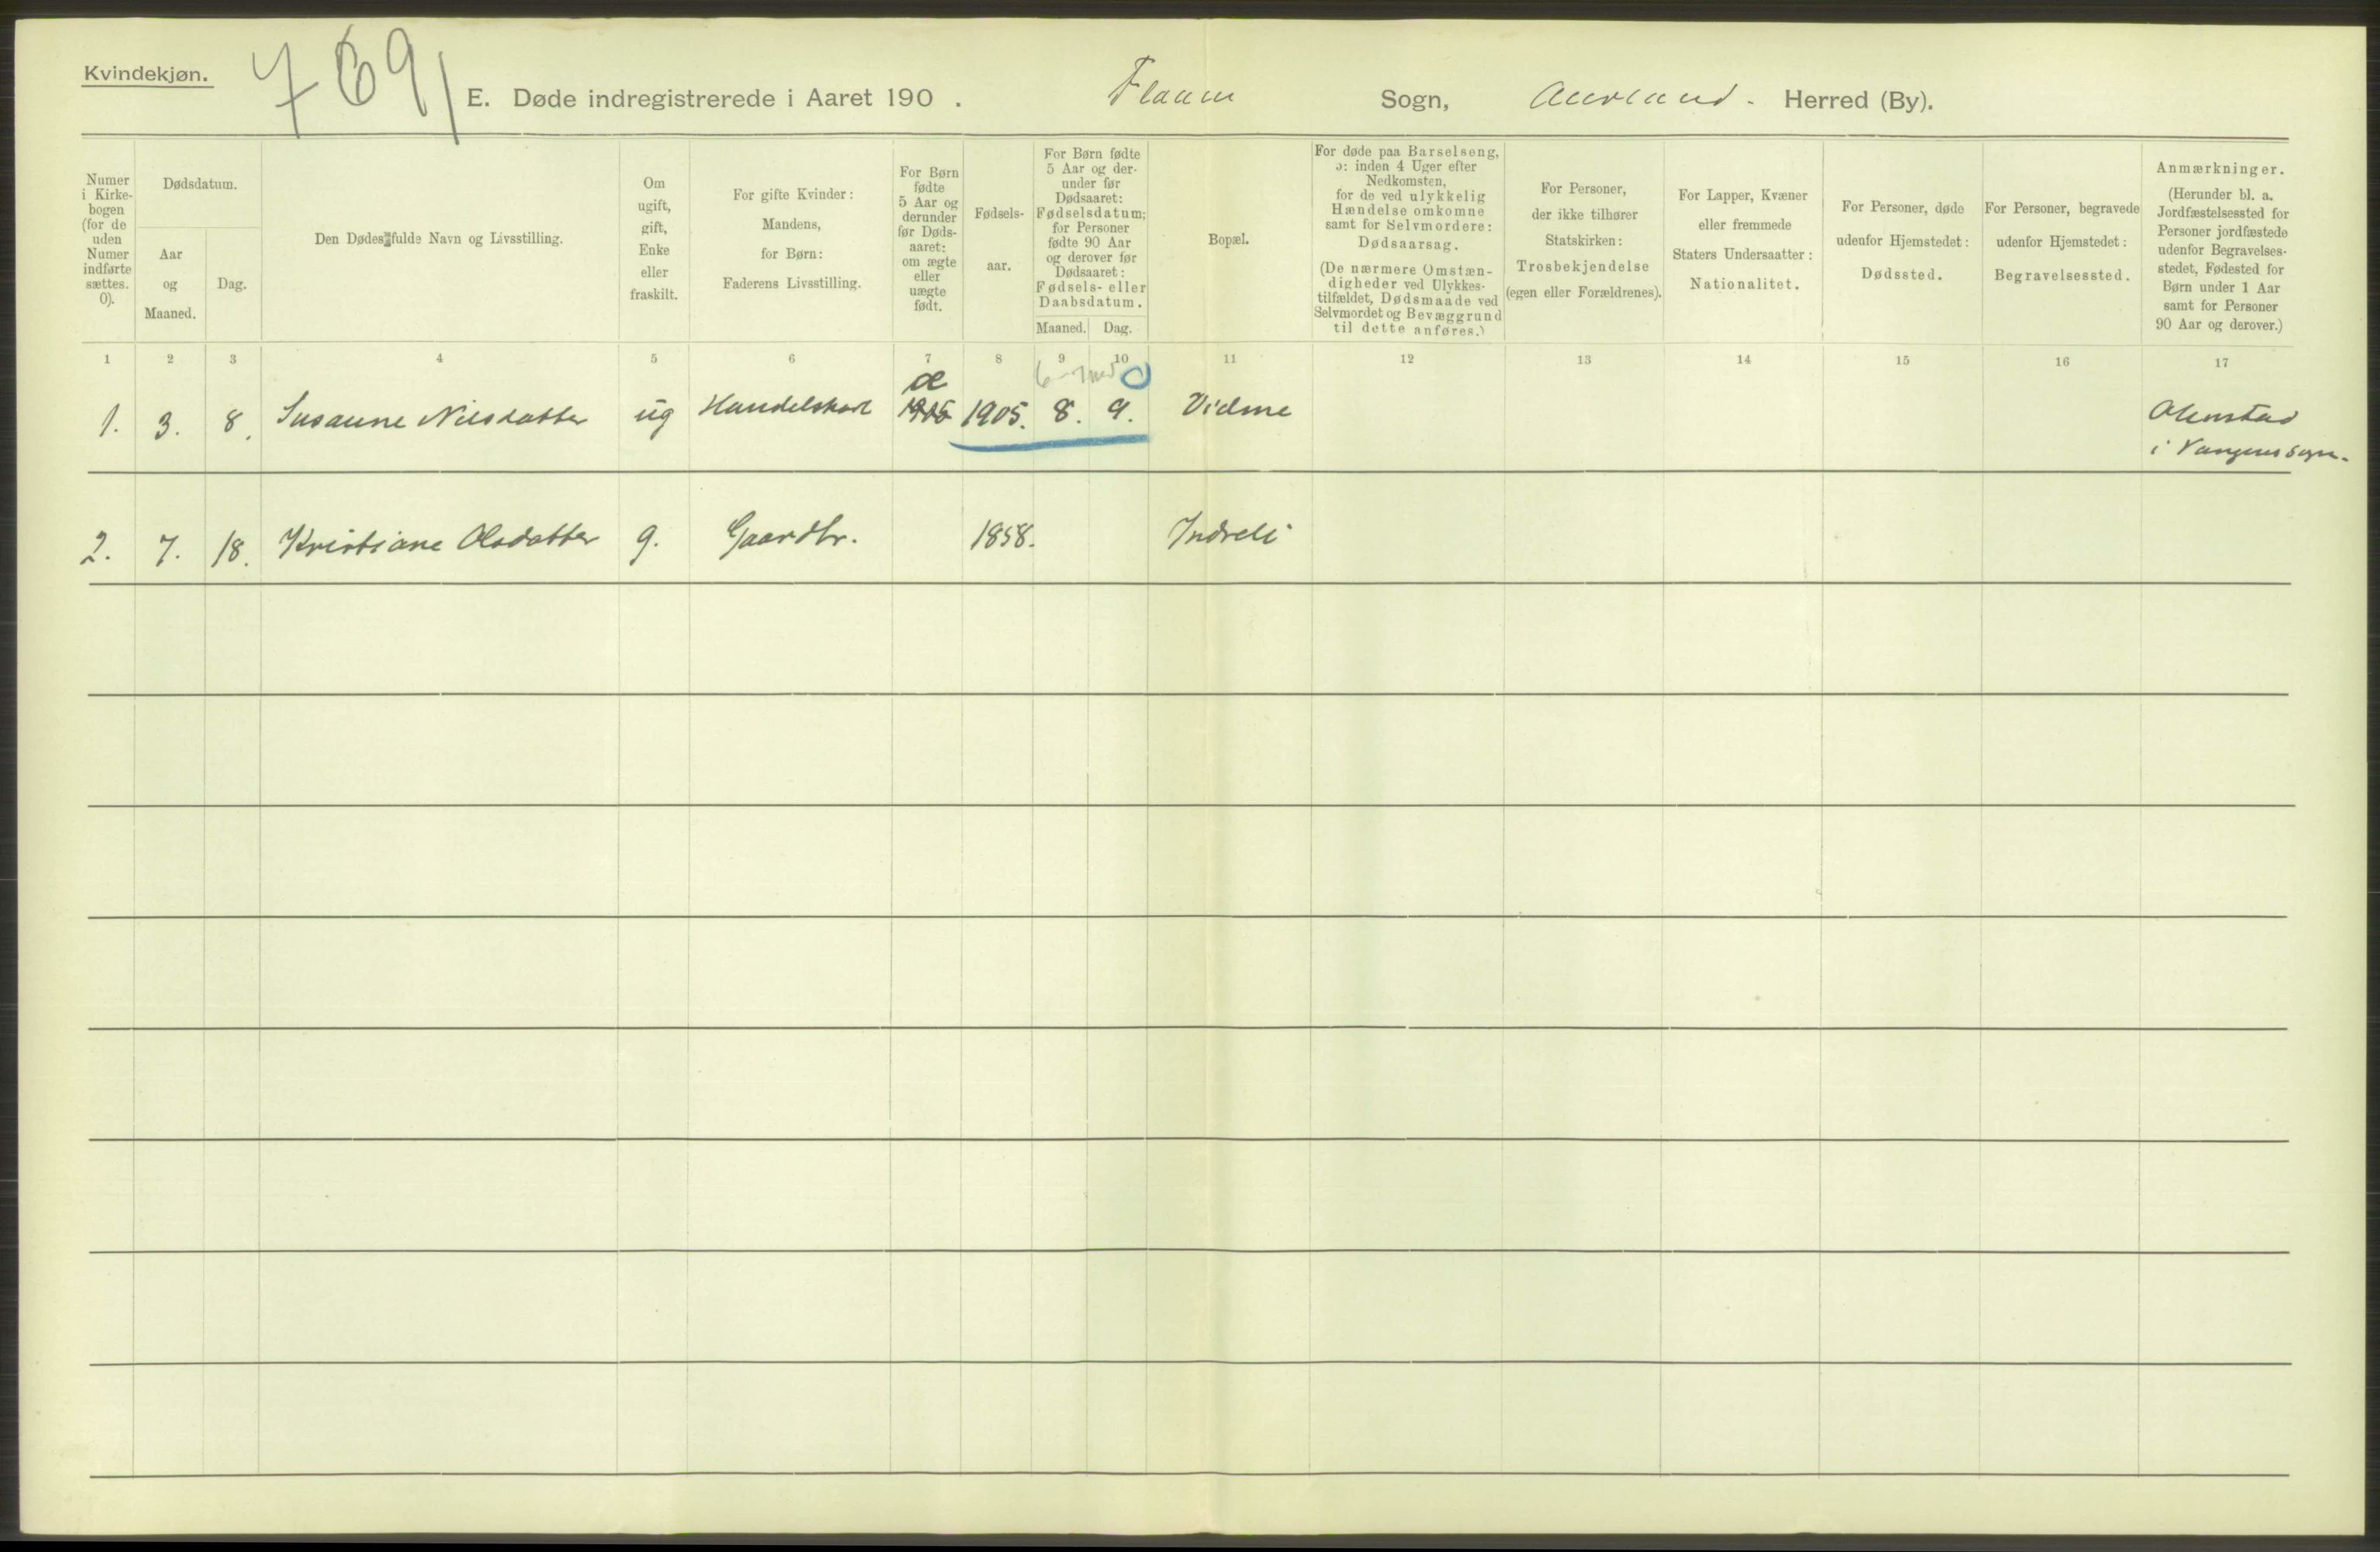 Kvindekjøn.
7691
E. Døde indregistrerede i Aaret 190 . Flaam Sogn, Aurland. Herred (By).
Numer
i Kirke-
bogen
(for de
uden
Numer
indførte
sættes.
0).
Dødsdatum.
Aar
og
Maaned.
Dag.
Den Dødes fulde Navn og Livsstilling.
Om
ugift,
gift,
Enke
eller
fraskilt.
For gifte Kvinder:
Mandens,
for Børn:
Faderens Livsstilling.
For Børn
fødte
5 Aar og
derunder
før Døds-
aaret:
om ægte
eller
uægte
født.
Fødsels-
aar.
For Børn fødte
5 Aar og der-
under før
Dødsaaret:
Fødselsdatum;
for Personer
fødte 90 Aar
og derover før
Dødsaaret:
Fødsels- eller
Daabsdatum.
Maaned. Dag.
Bopæl.
For døde paa Barselseng,
ɔ: inden 4 Uger efter
Nedkomsten,
for de ved ulykkelig
Hændelse omkomne
samt for Selvmordere:
Dødsaarsag.
(De nærmere Omstæn-
digheder ved Ulykkes-
tilfældet, Dødsmaade ved
Selvmordet og Bevæggrund
til dette anføres.)
For Personer,
der ikke tilhører
Statskirken:
Trosbekjendelse
(egen eller Forældrenes).
For Lapper, Kvæner
eller fremmede
Staters Undersaatter:
Nationalitet.
For Personer, døde
udenfor Hjemstedet:
Dødssted.
For Personer, begravede
udenfor Hjemstedet:
Begravelsessted.
Anmærkninger.
(Herunder bl. a.
Jordfæstelsessted for
Personer jordfæstede
udenfor Begravelses-
stedet, Fødested for
Børn under 1 Aar
samt for Personer
90 Aar og derover.)
1 2 3 4 5 6 7 8 9 10 11 12 13 14 15 16 17
6-7 md 0
æ
1. 3. 8. Susanne Nilsdatter ug Handelskarl 1905 1905. 8. 9. Vidme
i Vangens sogn.
2. 7. 18. Kristiane Olsdatter g. Gaardbr. 1858. Indreli